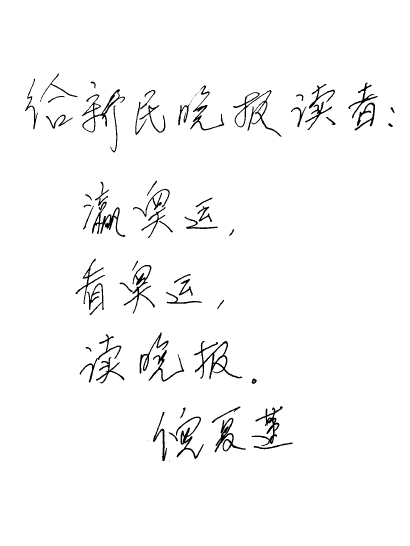 给新民晚报读者:
瀛奥运,
看奥运,
读晚报。
倪夏莲